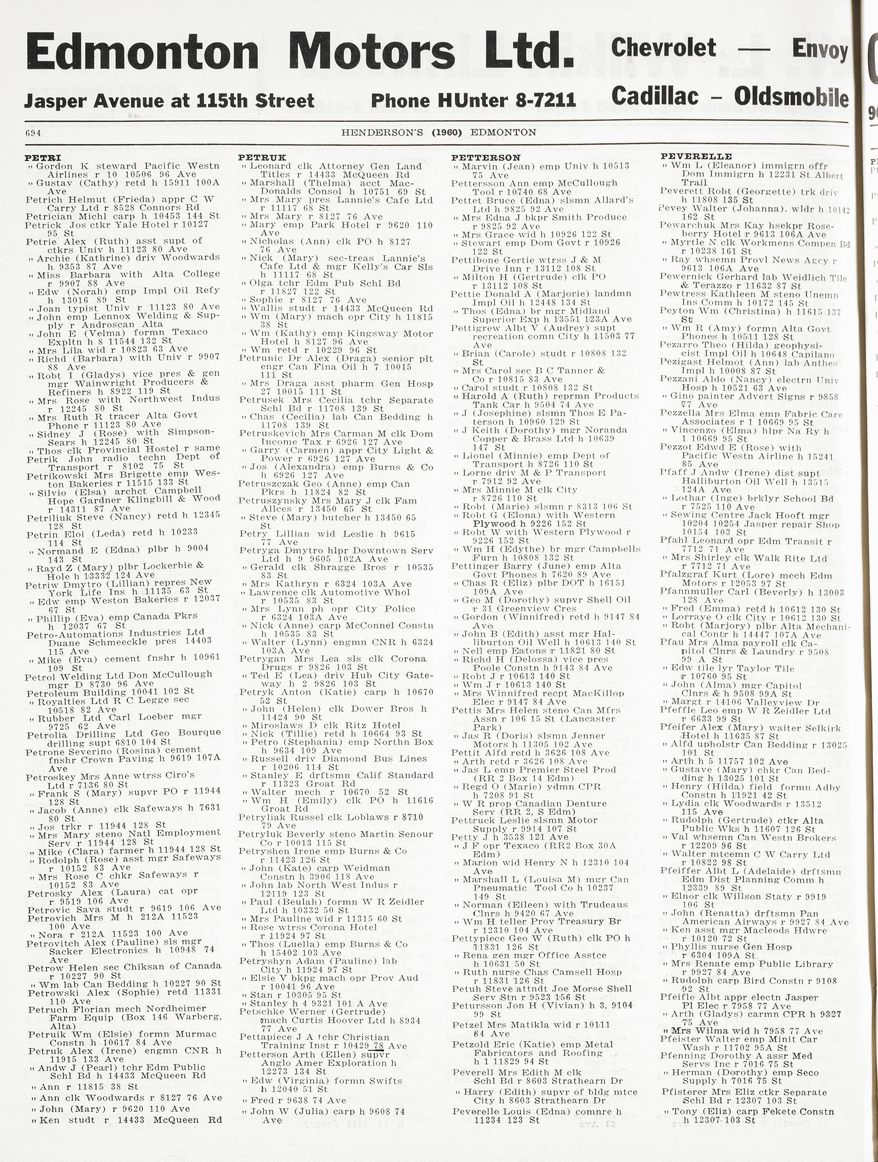 Edmonton Motors Ltd.
Chevrolet — Envoy
Jasper Avenue at 115th Street
Phone HUnter 8-7211
Cadillac – Oldsmobile
694
HENDERSON'S (1960) EDMONTON
PETRI
" Gordon K steward Pacific Westn
Airlines r 10 10506 96 Ave
" Gustav (Cathy) retd h 15911 100A
Ave
Petrich Helmut (Frieda) appr C W
Carry Ltd r 8528 Connors Rd
Petrician Michl carp h 10453 144 St
Petrick Jos ctkr Yale Hotel r 10127
95 St
Petrie Alex (Ruth) asst supt of
ctkrs Univ h 11123 80 Ave
" Archie (Kathrine) driv Woodwards
h 9353 87 Ave
" Miss Barbara with Alta College
r 9907 88 Ave
" Edw (Norah) emp Impl Oil Refy
h 13016 89 St
" Joan typist Univ r 11123 80 Ave
" John emp Lennox Welding & Sup-
ply r Androscan Alta
" John E (Velma) formn Texaco
Expltn h 8 11544 132 St
" Mrs Lila wid r 10823 63 Ave
" Richd (Barbara) with Univ r 9907
88 Ave
" Robt I (Gladys) vice pres & gen
mgr Wainwright Producers &
Refiners h 8922 119 St
" Mrs Rose with Northwest Indus
r 12245 80 St
" Mrs Ruth R tracer Alta Govt
Phone r 11123 80 Ave
" Sidney J (Rose) with Simpson-
Sears h 12245 80 St
" Thos clk Provincial Hostel r same
Petrik John radio techn Dept of
Transport r 8102 75 St
Petrikowski Mrs Brigette emp Wes-
ton Bakeries r 11515 133 St
" Silvio (Elsa) archet Campbell
Hope Gardner Klingbill & Wood
r 14311 87 Ave
Petriliuk Steve (Nancy) retd h 12345
128 St
Petrin Eloi (Leda) retd h 10233
114 St
" Normand E (Edna) plbr h 9004
143 St
" Rayd Z (Mary) plbr Lockerbie &
Hole h 13332 124 Ave
Petriw Dmytro (Lillian) repres New
York Life Ins h 11135 63 St
" Edw emp Weston Bakeries r 12037
67 St
" Phillip (Eva) emp Canada Pkrs
h 12037 67 St
Petro-Automations Industries Ltd
Duane Schmeeckle pres 14403
115 Ave
" Mike (Eva) cement fnshr h 10961
109 St
Petrol Welding Ltd Don McCullough
mgr D 8730 96 Ave
Petroleum Building 10041 102 St
" Royalties Ltd R C Legge sec
10518 82 Ave
" Rubber Ltd Carl Loeber mgr
9725 62 Ave
Petrolia Drilling Ltd Geo Bourque
drilling supt 6810 104 St
Petrone Severino (Rosina) cement
fnshr Crown Paving h 9619 107A
Ave
Petroskey Mrs Anne wtrss Ciro's
Ltd r 7136 80 St
" Frank S (Mary) supvr PO r 11944
128 St
" Jacob (Anne) clk Safeways h 7631
80 St
" Jos trkr r 11944 128 St
" Mrs Mary steno Natl Employment
Serv r 11944 128 St
" Mike (Clara) farmer h 11944 128 St
" Rodolph (Rose) asst mgr Safeways
r 10152 83 Ave
" Mrs Rose C chkr Safeways r
10152 83 Ave
Petrosky Alex (Laura) cat opr
r 9519 106 Ave
Petrovic Sava studt r 9619 106 Ave
Petrovich Mrs M h 212A 11523
100 Ave
" Nora r 212A 11523 100 Ave
Petrovitch Alex (Pauline) sls mgr
Sacker Electronics h 10948 74
Ave
Petrow Helen sec Chiksan of Canada
r 10227 90 St
" Wm lab Can Bedding h 10227 90 St
Petrowski Alex (Sophie) retd 11331
110 Ave
Petruch Florian mech Nordheimer
Farm Equip (Box 146 Warberg,
Alta)
Petruik Wm (Elsie) formn Murmac
Constn h 10617 84 Ave
Petruk Alex (Irene) engmn CNR h
11915 133 Ave
" Andw J (Pearl) tchr Edm Public
Schl Bd h 14433 McQueen Rd
" Ann r 11815 38 St
" Ann clk Woodwards r 8127 76 Ave
" John (Mary) r 9620 110 Ave
" Ken studt r 14433 McQueen Rd
PETRUK
" Leonard clk Attorney Gen Land
Titles r 14433 McQueen Rd
" Marshall (Thelma) acct Mac-
Donalds Consol h 10751 69 St
" Mrs Mary pres Lannie's Cafe Ltd
r 11117 68 St
" Mrs Mary r 8127 76 Ave
" Mary emp Park Hotel r 9620 110
Ave
" Nicholas (Ann) clk PO h 8127
76 Ave
" Nick (Mary) sec-treas Lannie's
Cafe Ltd & mgr Kelly's Car Sls
h 11117 68 St
" Olga tchr Edm Pub Schl Bd
r 11827 122 St
" Sophie r 8127 76 Ave
" Wallis studt r 14433 McQueen Rd
" Wm (Mary) mach opr City h 11815
38 St
" Wm (Kathy) emp Kingsway Motor
Hotel h 8127 96 Ave
" Wm retd r 10229 96 St
Petrunic Dr Alex (Draga) senior plt
engr Can Fina Oil h 7 10015
111 St
" Mrs Draga asst pharm Gen Hosp
27 10015 111 St
Petrusek Mrs Cecilia tchr Separate
Schl Bd r 11708 139 St
" Chas (Cecilia) lab Can Bedding h
11708 139 St
Petruskevich Mrs Carman M clk Dom
Income Tax r 6926 127 Ave
" Garry (Carmen) appr City Light &
Power r 6926 127 Ave
" Jos (Alexandra) emp Burns & Co
h 6926 127 Ave
Petruszczak Geo (Anne) emp Can
Pkrs h 11824 82 St
Petruszynsky Mrs Mary J clk Fam
Allces r 13450 65 St
" Steve (Mary) butcher h 13450 65
St
Petry Lillian wid Leslie h 9615
77 Ave
Petryga Dmytro hlpr Downtown Serv
Ltd h 9605 102A Ave
" Gerald clk Shragge Bros r 10535
83 St
" Mrs Kathryn r 6324 103A Ave
" Lawrence clk Automotive Whol
r 10535 83 St
" Mrs Lynn ph opr City Police
r 6324 103A Ave
" Nick (Anne) carp McConnel Constn
h 10535 83 St
" Walter (Lynn) engmn CNR h 6324
103A Ave
Petrygan Mrs Lea sls clk Corona
Drugs r 9826 103 St
" Ted E (Lea) driv Hub City Gate-
way h 2 9826 103 St
Petryk Anton (Katie) carp h 10670
52 St
" John (Helen) clk Dower Bros h
11424 90 St
" Miroslaws D clk Ritz Hotel
" Nick (Tillie) retd h 10664 93 St
" Petro (Stephania) emp Northn Box
h 9634 109 Ave
" Russell driv Diamond Bus Lines
r 10206 114 St
" Stanley E drftsmn Calif Standard
r 11323 Groat Rd
" Walter mech r 10670 52 St
" Wm H (Emily) clk PO h 11616
Groat Rd
Petryliak Russel clk Loblaws r 8710
79 Ave
Petryluk Beverly steno Martin Senour
Co r 10013 115 St
Petryshen Irene emp Burns & Co
r 11423 126 St
" John (Kate) carp Weidman
Constn h 3906 118 Ave
" John lab North West Indus r
12119 123 St
" Paul (Beulah) formn W R Zeidler
Ltd h 10332 50 St
" Mrs Pauline wid r 11315 60 St
" Rose wtrss Corona Hotel
r 11924 97 St
" Thos (Luella) emp Burns & Co
h 15402 103 Ave
Petryshyn Adam (Pauline) lab
City h 11924 97 St
" Elsie V bkpg mach opr Prov Aud
r 10041 96 Ave
" Stan r 10305 95 St
" Stanley h 4 9321 101 A Ave
Petschke Werner (Gertrude)
mach Curtis Hoover Ltd h 8934
77 Ave
Pettapiece J A tchr Christian
Training Inst r 10429 78 Ave
Petterson Arth (Ellen) supvr
Anglo Amer Exploration h
12273 134 St
" Edw (Virginia) formn Swifts
h 12040 51 St
" Fred r 9638 74 Ave
" John W (Julia) carp h 9608 74
Ave
PETTERSON
" Marvin (Jean) emp Univ h 10513
75 Ave
Pettersson Ann emp McCullough
Tool r 10740 68 Ave
Pettet Bruce (Edna) slsmn Allard's
Ltd h 9825 92 Ave
" Mrs Edna J bkpr Smith Produce
r 9825 92 Ave
" Mrs Grace wid h 10926 122 St
" Stewart emp Dom Govt r 10926
122 St
Pettibone Gertie wtrss J & M
Drive Inn r 13112 108 St
" Milton H (Gertrude) clk PO
r 13112 108 St
Pettie Donald A (Marjorie) landmn
Impl Oil h 12448 134 St
" Thos (Edna) br mgr Midland
Superior Exp h 13551 123A Ave
Pettigrew Albt V (Audrey) supt
recreation comn City h 11503 77
Ave
" Brian (Carole) studt r 10808 132
St
" Mrs Carol sec B C Tanner &
Co r 10815 83 Ave
" Carol studt r 10808 132 St
" Harold A (Ruth) reprmn Products
Tank Car h 9504 74 Ave
" J (Josephine) slsmn Thos E Pa-
terson h 10960 129 St
" J Keith (Dorothy) mgr Noranda
Copper & Brass Ltd h 10639
147 St
" Lionel (Minnie) emp Dept of
Transport h 8726 110 St
" Lorne driv M & P Transport
r 7912 92 Ave
" Mrs Minnie M clk City
r 8726 110 St
" Robt (Marie) slsmn r 8313 106 St
" Robt G (Elona) with Western
Plywood h 9226 152 St
" Robt W with Western Plywood r
9226 152 St
" Wm H (Edythe) br mgr Campbells
Furn h 10808 132 St
Pettinger Barry (June) emp Alta
Govt Phones h 7620 89 Ave
" Chas R (Eliz) plbr DOT h 16151
109A Ave
" Geo M (Dorothy) supvr Shell Oil
r 31 Greenview Cres
" Gordon (Winnifred) retd h 9147 84
Ave
" John B (Edith) asst mgr Hal-
liburton Oil Well h 10613 140 St
" Nell emp Eatons r 11821 80 St
" Richd H (Delossa) vice pres
Poole Constn h 9143 84 Ave
" Robt J r 10613 140 St
" Wm J r 10613 140 St
" Mrs Winnifred recpt MacKillop
Elec r 9147 84 Ave
Pettis Mrs Helen steno Can Mfrs
Assn r 106 15 St (Lancaster
Park)
" Jas R (Doris) slsmn Jenner
Motors h 11305 102 Ave
Pettit Alfd retd h 3626 108 Ave
" Arth retd r 3626 108 Ave
" Jas L emp Premier Steel Prod
(RR 2 Box 14 Edm)
" Regd O (Marie) ydmn CPR
h 7208 91 St
" W R prop Canadian Denture
Serv (RR 2, S Edm)
Pettruck Leslie slsmn Motor
Supply r 9914 107 St
Petty J h 3538 121 Ave
" J F opr Texaco (RR2 Box 30A
Edm)
" Marion wid Henry N h 12310 104
Ave
" Marshall L (Louisa M) mgr Can
Pneumatic Tool Co h 10237
149 St
" Norman (Eileen) with Trudeaus
Clnrs h 9420 67 Ave
" Wm H teller Prov Treasury Br
r 12310 104 Ave
Pettypiece Geo W (Ruth) clk PO h
11831 126 St
" Rena gen mgr Office Asstce
h 10631 50 St
" Ruth nurse Chas Camsell Hosp
r 11831 126 St
Petuh Steve attndt Joe Morse Shell
Serv Stn r 9523 156 St
Petursson Jon H (Vivian) h 3, 9104
99 St
Petzel Mrs Matikla wid r 10111
84 Ave
Petzold Eric (Katie) emp Metal
Fabricators and Roofing
h 1 11829 94 St
Peverell Mrs Edith M clk
Schl Bd r 8603 Strathearn Dr
" Harry (Edith) supvr of bldg mtce
City h 8603 Strathearn Dr
Peverelle Louis (Edna) comnre h
11234 123 St
PEVERELLE
" Wm L (Eleanor) immigrn offr
Dom Immigrn h 12231 St Albert
Trail
Peverett Robt (Georgette) trk driv
h 11808 135 St
Pevey Walter (Johanna). wldr h 10142
162 St
Pewarchuk Mrs Kay hsekpr Rose-
berry Hotel r 9613 106A Ave
" Myrtle N clk Workmens Compen Bd
r 10238 161 St
" Ray whsemn Provl News Agcy r
9613 106A Ave
Pewernick Gerhard lab Weidlich Tile
& Terazzo r 11632 87 St
Pewtress Kathleen M steno Unemp
Ins Comm h 10172 145 St
Peyton Wm (Christina) h 11615 137
St
" Wm R (Amy) formn Alta Govt
Phones h 10511 128 St
Pezarro Theo (Hilda) geophysi-
cist Impl Oil h 10648 Capilano
Pezigast Helmot (Ann) lab Anthes
Impl h 10008 87 St
Pezzani Aldo (Nancy) electrn Univ
Hosp h 10521 63 Ave
" Gino painter Advert Signs r 9858
77 Ave
Pezzella Mrs Elma emp Fabric Care
Associates r 1 10669 95 St
" Vincenzo (Elma) hlpr Na Ry h
1 10669 95 St
Pezzot Edwd E (Rose) with
Pacific Westn Airline h 15241
85 Ave
Pfaff J Andw (Irene) dist supt
Halliburton Oil Well h 13515
124A Ave
" Lothar (Inge) brklyr School Bd
r 7525 110 Ave
" Sewing Centre Jack Hooft mgr
10204 10254 Jasper repair Shop
10154 103 St
Pfahl Leonard opr Edm Transit r
7712 71 Ave
" Mrs Shirley clk Walk Rite Ltd
r 7712 71 Ave
Pfalzgraf Kurt (Lore) mech Edm
Motors r 12053 97 St
Pfannmuller Carl (Beverly) h 13003
128 Ave
" Fred (Emma) retd h 10612 130 St
" Lorraye O clk City r 10612 130 St
" Robt (Marjory) plbr Alta Mechani-
cal Contr h 14447 107A Ave
Pfau Mrs Alma payroll clk Ca-
pitol Clnrs & Laundry r 9508
99 A St
" Edw tile lyr Taylor Tile
r 10760 95 St
" John (Alma) mgr Capitol
Clnrs & h 9508 99A St
" Margt r 14106 Valleyview Dr
Pfeffle Leo emp W R Zeidler Ltd
r 6633 99 St
Pfeifer Alex (Mary) waiter Selkirk
Hotel h 11635 87 St
" Alfd upholstr Can Bedding r 13025
101 St
" Arth h 5 11757 102 Ave
" Gustave (Mary) chkr Can Bed-
ding h 13025 101 St
" Henry (Hilda) field formn Adby
Constn h 11921 42 St
" Lydia clk Woodwards r 13512
115 Ave
" Rudolph (Gertrude) ctkr Alta
Public Wks h 11607 126 St
" Val whsemn Can Westn Brokers
r 12209 96 St
" Walter mtcemn C W Carry Ltd
r 10822 98 St
Pfeiffer Albt L (Adelaide) drftsmn
Edm Dist Planning Comm h
12339 89 St
" Elnor clk Willson Staty r 9919
106 St
" John (Renatta) drftsmn Pan
American Airways r 9927 84 Ave
" Ken asst mgr Macleods Hdwre
r 10120 72 St
" Phyllis nurse Gen Hosp
r 6304 109A St
" Mrs Renate emp Public Library
r 9927 84 Ave
" Rudolph carp Bird Constn r 9108
92 St
Pfeifle Albt appr electn Jasper
Pl Elec r 7958 77 Ave
" Arth (Gladys) carmn CPR h 9327
75 Ave
" Mrs Wilma wid h 7958 77 Ave
Pfeister Walter emp Minit Car
Wash r 11702 95A St
Pfenning Dorothy A assr Med
Servs Inc r 7016 75 St
" Herman (Dorothy) emp Seco
Supply h 7016 75 St
Pfisterer Mrs Eliz ctkr Separate
Schl Bd r 12307 103 St
" Tony (Eliz) carp Fekete Constn
h 12307 103 St